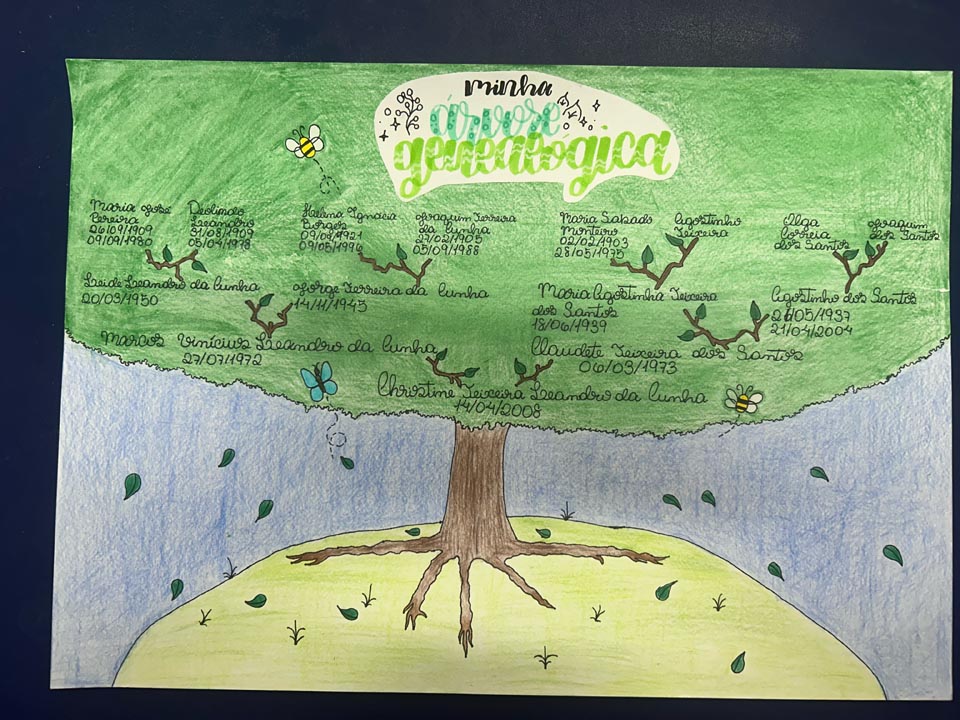 minha
árvore
genealógica
Maria José
Pereira
26/09/1909
09/09/1980
Deolindo
Leandro
31/08/1909
05/04/1978
Helena Ignacia
Borges
09/08/1921
09/05/1996
Joaquim Ferreira
da Cunha
27/02/1905
05/09/1988
Maria Salgado
Monteiro
02/02/1903
28/05/1975
Agostinho
Teixeira
Olga
Correia
dos Santos
Joaquim
dos Santos
Leide Leandro da Cunha
20/03/1950
Jorge Ferreira da Cunha
14/11/1945
Maria Agostinha Teixeira
dos Santos
18/06/1939
Agostinho dos Santos
21/05/1937
21/04/2004
Marcos Vinícius Leandro da Cunha
27/07/1972
Claudete Teixeira dos Santos
06/03/1973
Christine Teixeira Leandro da Cunha
14/04/2008